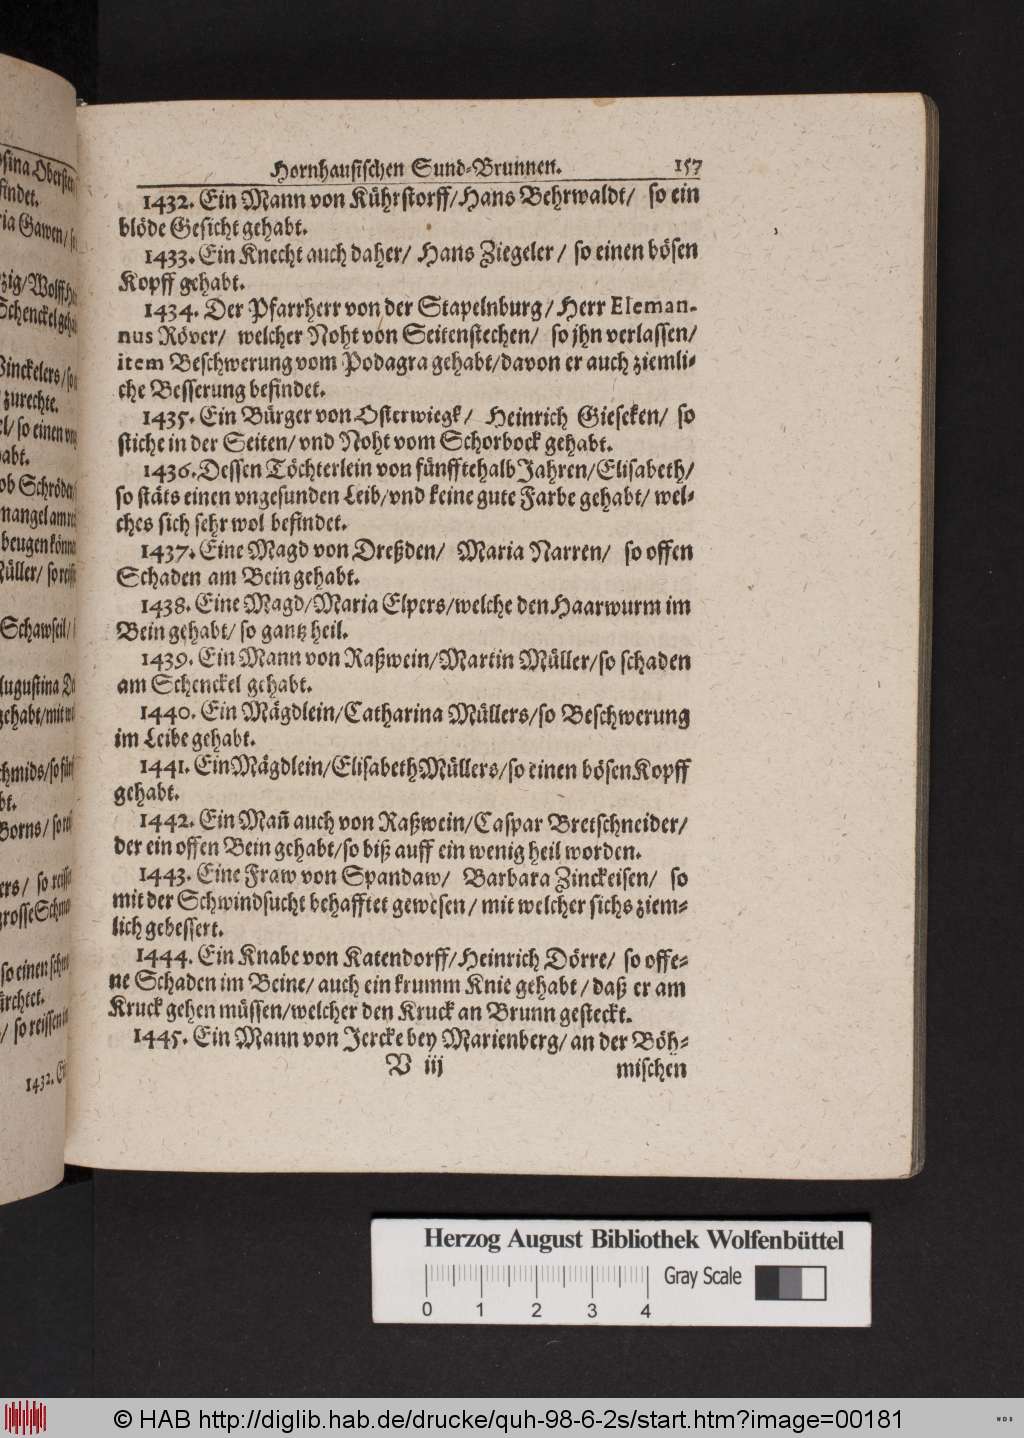 Hornhausischen Sund-Brunnen. 157
1432. Ein Mann von Kührstorff/Hans Behrwaldt/ so ein
blöde Gesicht gehabt.
1433. Ein Knecht auch daher/ Hans Ziegeler/ so einen bösen
Kopff gehabt.
1434. Der Pfarrherr von der Stapelnburg/ Herr Eleman-
nus Röver/ welcher Noht von Seitenstechen/ so jhn verlassen/
item Beschwerung vom Podagra gehabt/davon er auch ziemli-
che Besserung befindet.
1435. Ein Bürger von Osterwiegk/ Heinrich Gieseken/ so
stiche in der Seiten/ vnd Noht vom Schorbock gehabt.
1436. Dessen Töchterlein von fünfftehalb Jahren/Elisabeth/
so stäts einen vngesunden Leib/vnd keine gute Farbe gehabt/ wel-
ches sich sehr wol befindet.
1437. Eine Magd von Dreßden/ Maria Narren/ so offen
Schaden am Bein gehabt.
1438. Eine Magd/Maria Elpers/welche den Haarwurm im
Bein gehabt/ so gantz heil.
1439. Ein Mann von Raßwein/Martin Müller/so schaden
am Schenckel gehabt.
1440. Ein Mägdlein/Catharina Müllers/so Beschwerung
im Leibe gehabt.
1441. Ein Mägdlein/Elisabeth Müllers/so einen bösen Kopff
gehabt.
1442. Ein Mañ auch von Raßwein/Caspar Bretschneider/
der ein offen Bein gehabt/so biß auff ein wenig heil worden.
1443. Eine Fraw von Spandaw/ Barbara Zinckeisen/ so
mit der Schwindsucht behafftet gewesen/ mit welcher sichs ziem-
lich gebessert.
1444. Ein Knabe von Katendorff/Heinrich Dörre/ so offe-
ne Schaden im Beine/ auch ein krumm Knie gehabt/ daß er am
Kruck gehen müssen/welcher den Kruck an Brunn gesteckt.
1445. Ein Mann von Jercke bey Marienberg/ an der Böh-
V iij mischen
Herzog August Bibliothek Wolfenbüttel
0 1 2 3 4 Gray Scale
© HAB http://diglib.hab.de/drucke/quh-98-6-2s/start.htm?image=00181